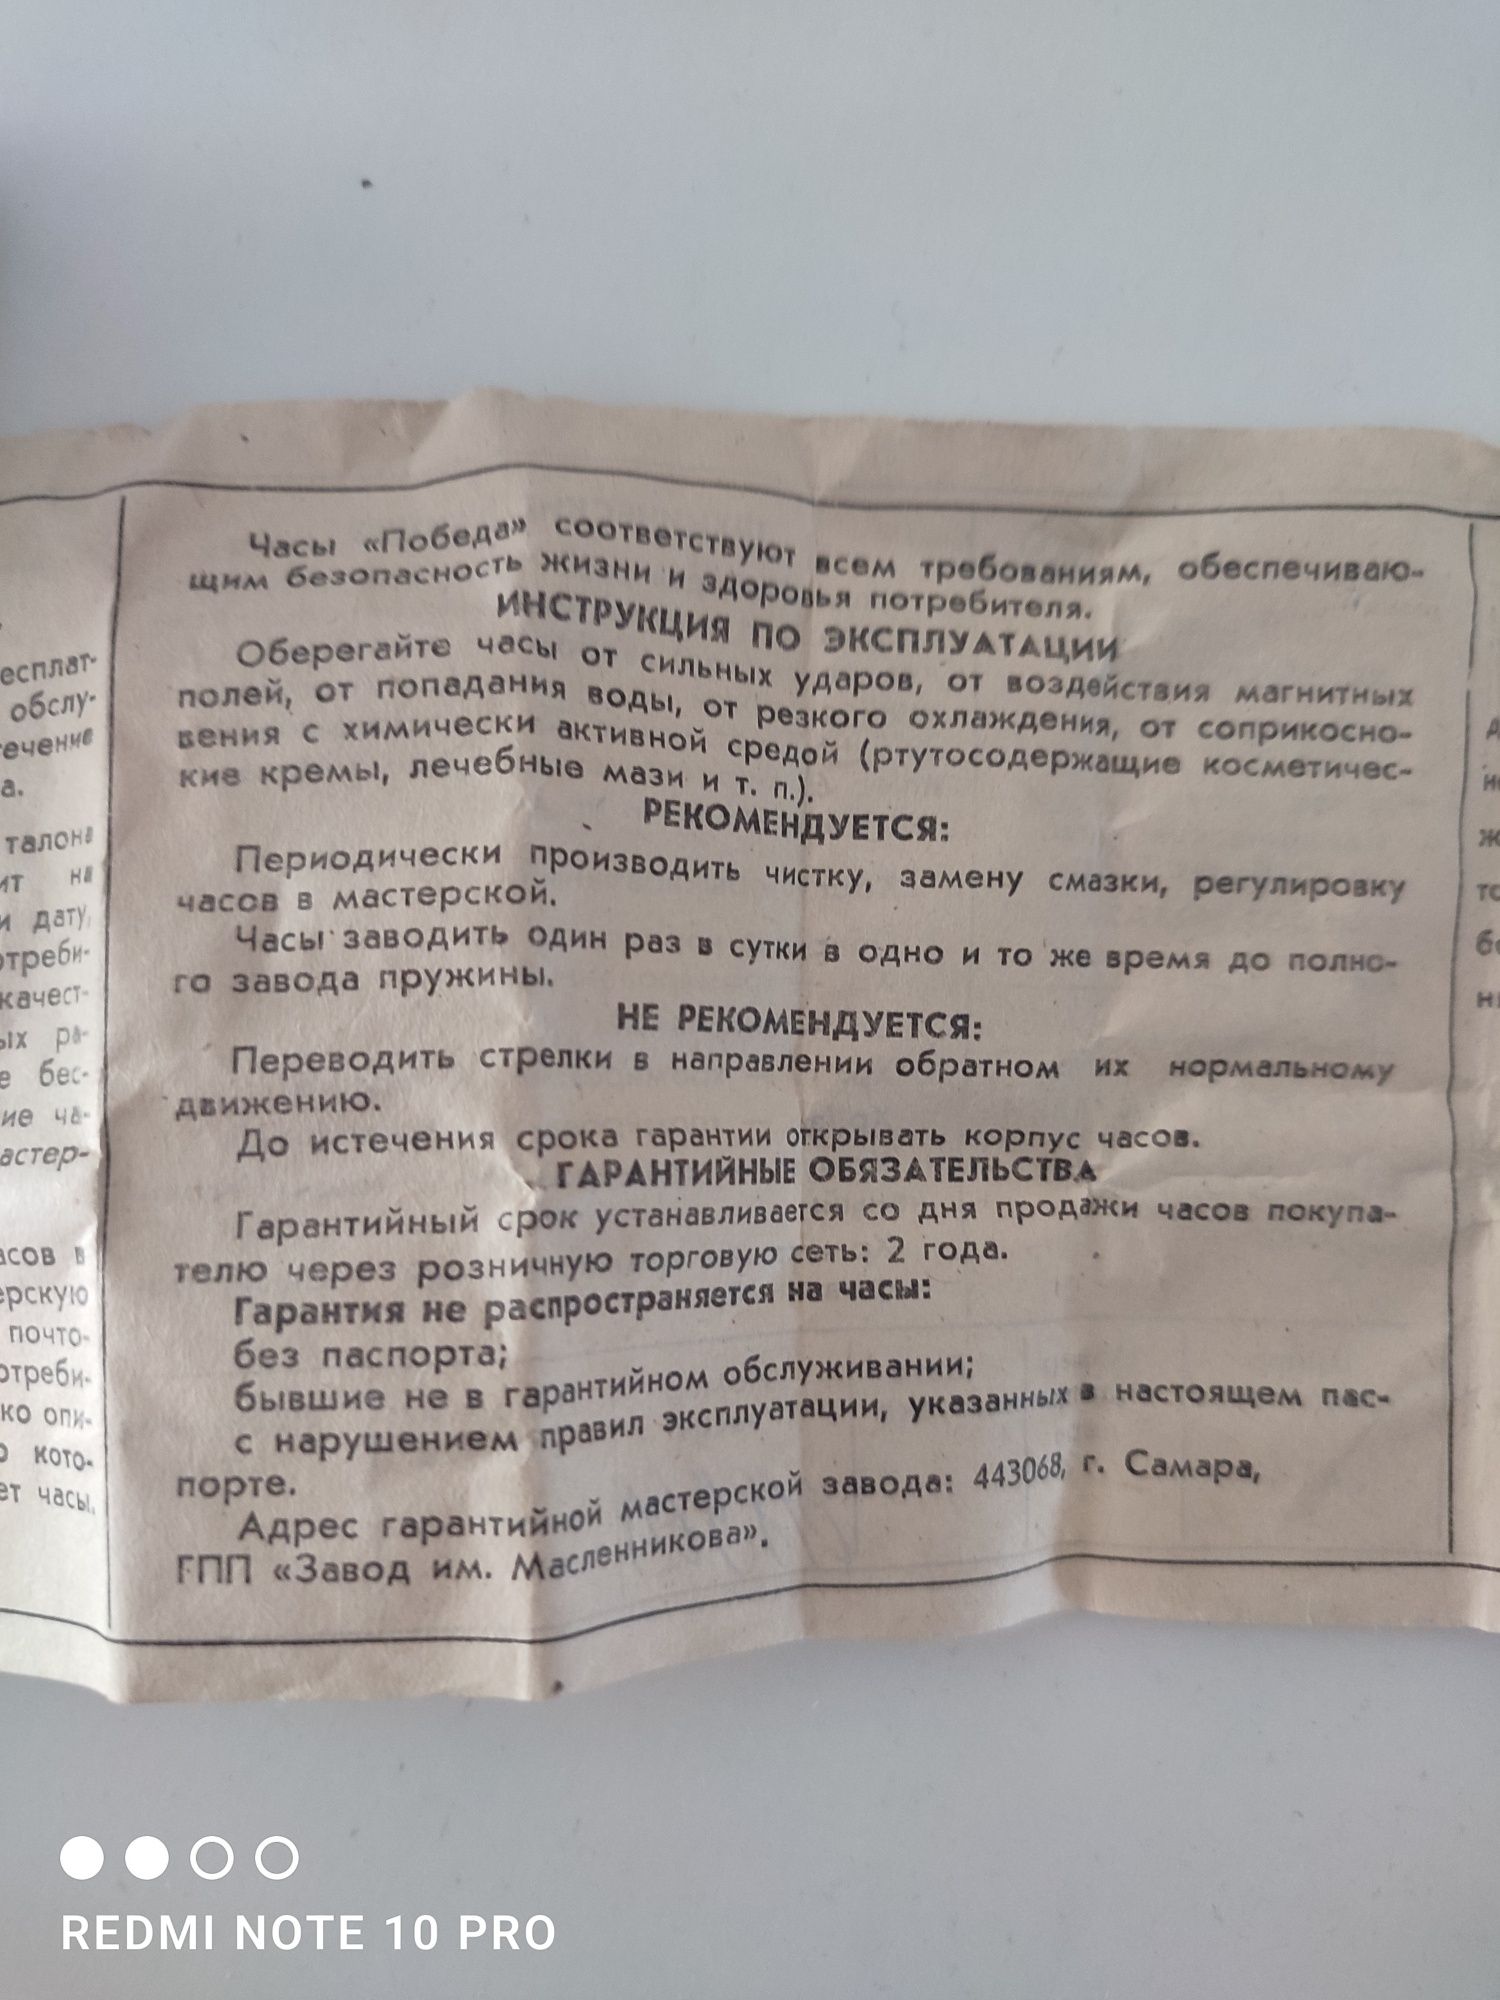 есплат-
обслу-
течение
а.
талона
ит на
и дату,
отреби-
качест-
ых ра-
е бес-
ние ча-
астер-
асов в
ерскую
почто-
отреби-
ко опи-
о кото-
ет часы,
Часы «Победа» соответствуют всем требованиям, обеспечиваю-
щим безопасность жизни и здоровья потребителя.
ИНСТРУКЦИЯ ПО ЭКСПЛУАТАЦИИ
Оберегайте часы от сильных ударов, от воздействия магнитных
полей, от попадания воды, от резкого охлаждения, от соприкосно-
вения с химически активной средой (ртутосодержащие косметичес-
кие кремы, лечебные мази и т. п.).
РЕКОМЕНДУЕТСЯ:
Периодически производить чистку, замену смазки, регулировку
часов в мастерской.
Часы заводить один раз в сутки в одно и то же время до полно-
го завода пружины.
НЕ РЕКОМЕНДУЕТСЯ:
Переводить стрелки в направлении обратном их нормальному
движению.
До истечения срока гарантии открывать корпус часов.
ГАРАНТИЙНЫЕ ОБЯЗАТЕЛЬСТВА
Гарантийный срок устанавливается со дня продажи часов покупа-
телю через розничную торговую сеть: 2 года.
Гарантия не распространяется на часы:
без паспорта;
бывшие не в гарантийном обслуживании;
с нарушением правил эксплуатации, указанных в настоящем пас-
порте.
Адрес гарантийной мастерской завода: 443068, г. Самара,
ГПП «Завод им. Масленникова».
REDMI NOTE 10 PRO